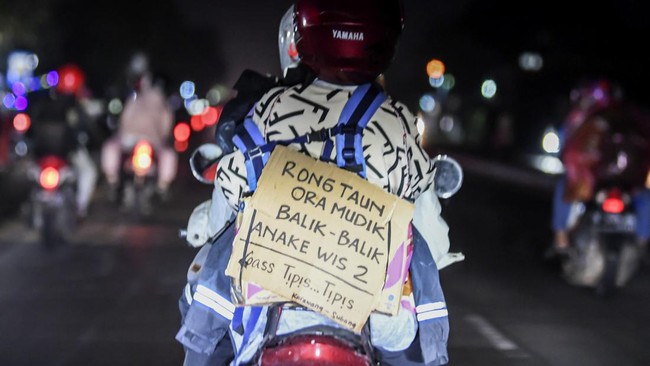 YAMAHA
RONG TAUN
ORA MUDIK
BALIK-BALIK
ANAKE WIS 2
Gass Tipis... Tipis
Karawang - Subang